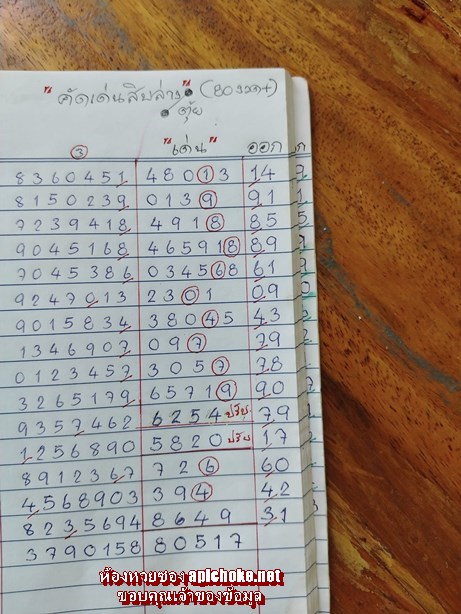 "คัดเด่นสิบล่าง" (80งวด+)
ตุ้ย
③ "เด่น" ออก
8360451 48013 14
8150239 0139 91
7239418 4918 85
9045168 465918 89
7045386 034568 61
9247013 2301 09
9015834 38045 43
1346907 097 79
0123457 3057 78
3265179 65719 90
9357462 6254 ปรับ 79
1256890 5820 ปรับ 17
8912367 726 60
4568903 394 42
8235694 8649 31
3790158 80517
ห้องหวยซอง apichoke.net
ขอบคุณเจ้าของข้อมูล